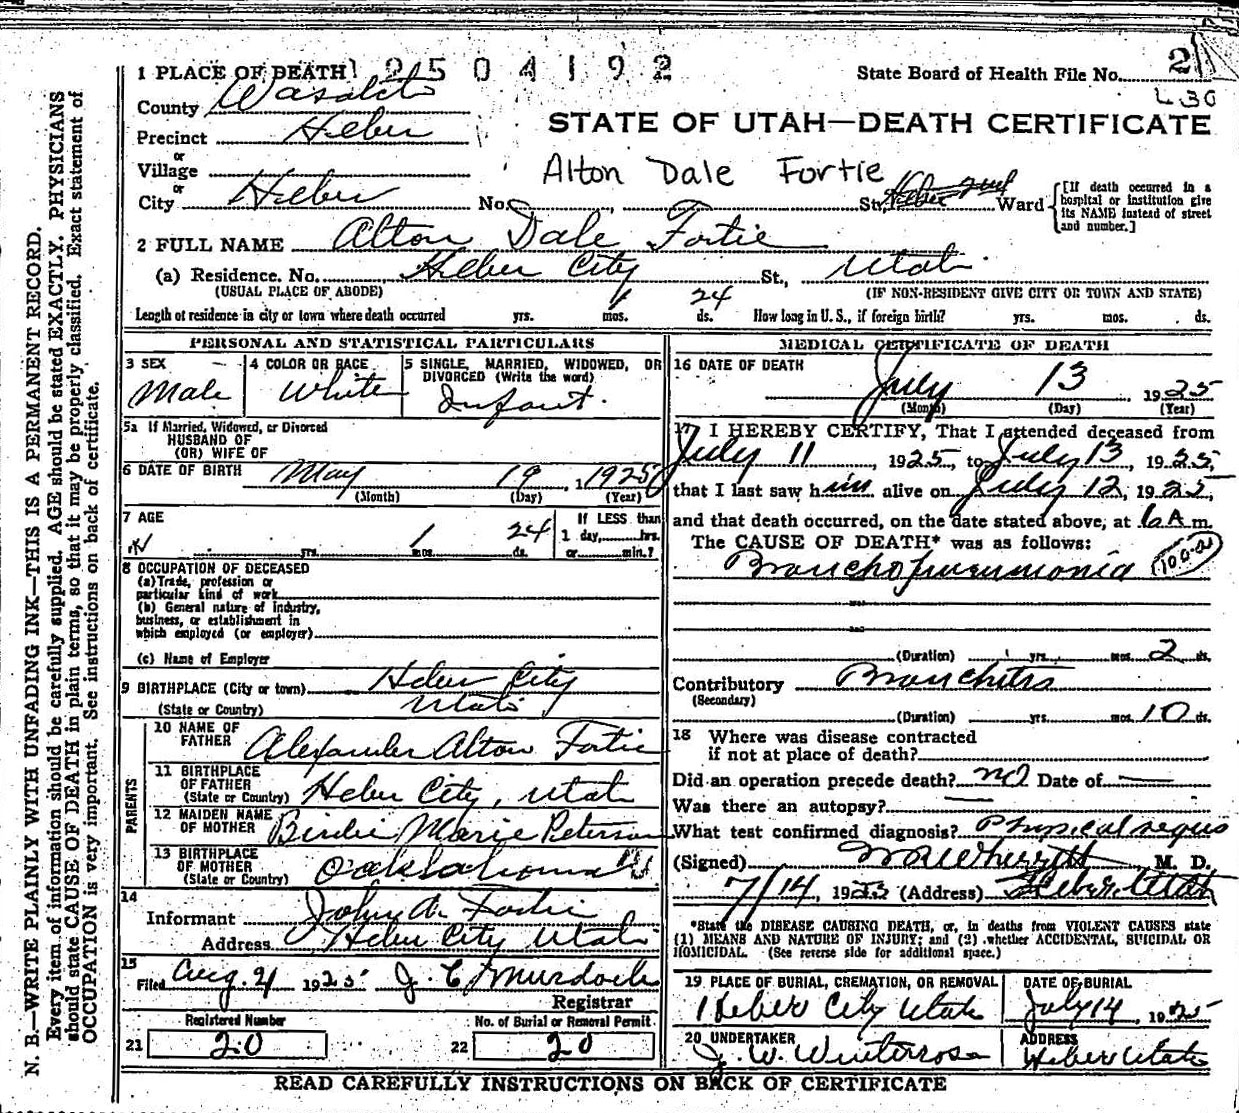 2
L 30
1 PLACE OF DEATH 2504192 State Board of Health File No.
County Wasatch
STATE OF UTAH—DEATH CERTIFICATE
Precinct Heber
or
Village
Alton Dale Fortie
or
City Heber No. St, Heber Ward
[If death occurred in a hospital or institution give its NAME instead of street and number.]
2 FULL NAME Alton Dale Fortie
(a) Residence. No. Heber City St., Utah
(USUAL PLACE OF ABODE) (IF NON-RESIDENT GIVE CITY OR TOWN AND STATE)
Length of residence in city or town where death occurred yrs. 1 mos. 24 ds. How long in U. S., if foreign birth? yrs. mos. ds.
PERSONAL AND STATISTICAL PARTICULARS
3 SEX Male
4 COLOR OR RACE White
5 SINGLE, MARRIED, WIDOWED, OR DIVORCED (Write the word) Infant.
5a If Married, Widowed, or Divorced
HUSBAND OF
(OR) WIFE OF
6 DATE OF BIRTH May 19, 1925
(Month) (Day) (Year)
7 AGE yrs. 1 mos. 24 ds.
If LESS than 1 day, hrs. or min.?
8 OCCUPATION OF DECEASED
(a) Trade, profession or particular kind of work
(b) General nature of industry, business, or establishment in which employed (or employer)
(c) Name of Employer
9 BIRTHPLACE (City or town) Heber City
(State or Country) Utah
PARENTS
10 NAME OF FATHER Alexander Alton Fortie
11 BIRTHPLACE OF FATHER (State or Country) Heber City, Utah
12 MAIDEN NAME OF MOTHER Birdie Marie Peterson
13 BIRTHPLACE OF MOTHER (State or Country) Oaklahoma
14
Informant John A. Fortie
Address Heber City Utah
15
Filed Aug. 21 1925 J. C. Murdock
Registrar
Registered Number
21 20
No. of Burial or Removal Permit
22 20
MEDICAL CERTIFICATE OF DEATH
16 DATE OF DEATH July 13 1925
(Month) (Day) (Year)
17 I HEREBY CERTIFY, That I attended deceased from
July 11, 1925, to July 13, 1925,
that I last saw him alive on July 12, 1925,
and that death occurred, on the date stated above, at 6 A m.
The CAUSE OF DEATH* was as follows:
Branchopneumonia
(Duration) yrs. mos. 2 ds.
Contributory Branchitis
(Secondary)
(Duration) yrs. mos. 10 ds.
18 Where was disease contracted
if not at place of death?
Did an operation precede death? no Date of
Was there an autopsy?
What test confirmed diagnosis? Physical signs
(Signed) M. D.
7/14, 1925 (Address) Heber Utah
*State the DISEASE CAUSING DEATH, or, in deaths from VIOLENT CAUSES state
(1) MEANS AND NATURE OF INJURY; and (2) whether ACCIDENTAL, SUICIDAL OR
HOMICIDAL. (See reverse side for additional space.)
19 PLACE OF BURIAL, CREMATION, OR REMOVAL
Heber City Utah
DATE OF BURIAL
July 14, 1925
20 UNDERTAKER
J. W. Winterrose
ADDRESS
Heber Utah
READ CAREFULLY INSTRUCTIONS ON BACK OF CERTIFICATE
N. B.—WRITE PLAINLY WITH UNFADING INK—THIS IS A PERMANENT RECORD.
Every item of information should be carefully supplied. AGE should be stated EXACTLY. PHYSICIANS
should state CAUSE OF DEATH in plain terms, so that it may be properly classified. Exact statement of
OCCUPATION is very important. See instructions on back of certificate.